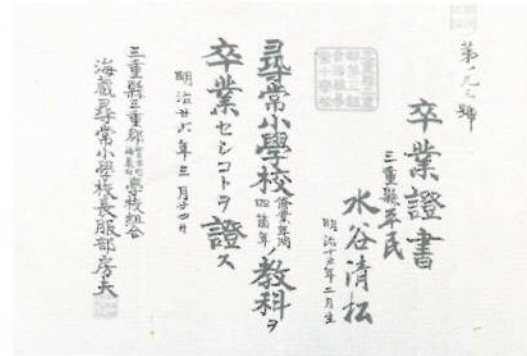 第一九三號
卒業證書
三重縣平民
水谷清松
明治十五年二月生
尋常小學校修業年限四箇年ノ教科ヲ
卒業セシコトヲ證ス
明治廿六年三月廿四日
三重縣三重郡海藏村學校組合
海藏尋常小學校長服部房夫